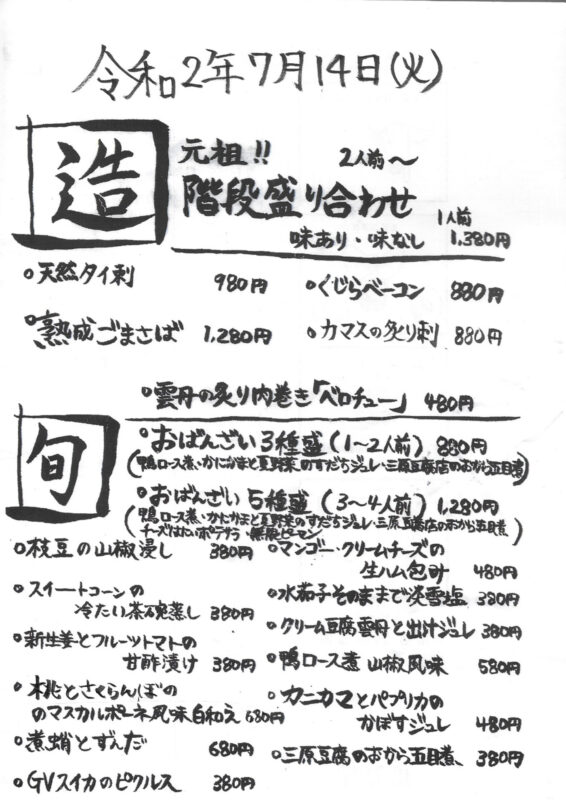 令和2年7月14日(火)
造
元祖!! 2人前〜
階段盛り合わせ 1人前
味あり・味なし 1,380円
天然タイ刺 980円
くじらベーコン 880円
熟成ごまさば 1,280円
カマスの炙り刺 880円
旬
雲丹の炙り肉巻き「ベロチュー」 480円
おばんざい3種盛(1〜2人前) 880円
(鴨ロース煮・かにかまと夏野菜のすだちジュレ・三原豆腐店のおから五目煮)
おばんざい5種盛(3〜4人前) 1,280円
(鴨ロース煮・かにかまと夏野菜のすだちジュレ・三原豆腐店のおから五目煮
チーズはたいポテサラ・無限ピーマン)
枝豆の山椒浸し 380円
スイートコーンの
冷たい茶碗蒸し 380円
新生姜とフルーツトマトの
甘酢漬け 380円
桃とさくらんぼの
のマスカルポーネ風味白和え 680円
煮蛸とずんだ 680円
GVスイカのピクルス 380円
マンゴー・クリームチーズの
生ハム包み 480円
水茄子そのままで淡雪塩 380円
クリーム豆腐雲丹と出汁ジュレ 380円
鴨ロース煮 山椒風味 580円
カニカマとパプリカの
かぼすジュレ 480円
三原豆腐のおから五目煮、 380円